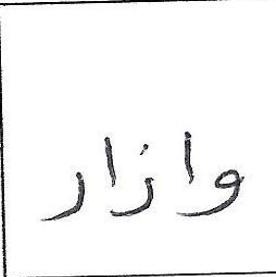 وازار